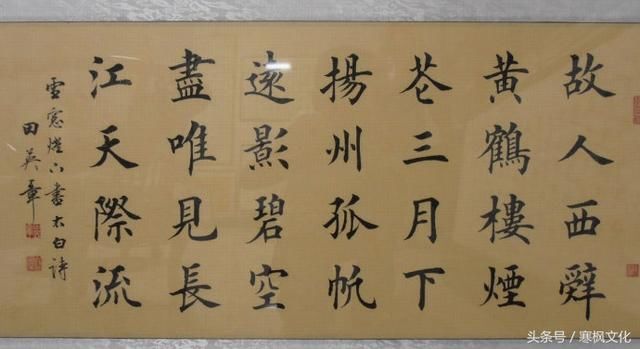 故人西辭
黄鶴樓煙
花三月下
揚州孤帆
遠影碧空
盡唯見長
江天際流
雪窓燈下書太白詩
田英章
头条号 / 寒枫文化